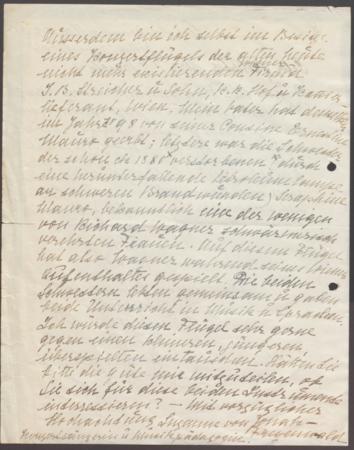 Ausserdem bin ich selbst im Besitze
eines Konzertflügels der alten heute
nicht mehr existierenden Firma
J.B. Streicher u. Sohn, K.K. Hof u. Klavier-
lieferant, Wien. Mein Vater hat denselben
im Jahre 98 von einer Cousine Ernestine
Mauro geerbt; letztere war die Schwester
der schon in 1880 verstorbenen (durch
eine herunterfallende Petroleumlampe
an schweren Brandwunden) Seraphine
Mauro, bekanntlich eine der wenigen
von Richard Wagner schwärmerisch
verehrten Frauen. Auf diesem Flügel
hat also Wagner während seines Wiener
Aufenthaltes gespielt. Die beiden
Schwestern lebten gemeinsam u. gaben
beide Unterricht in Musik u. Sprachen.
Ich würde diesen Flügel sehr gerne
gegen einen kleineren, jüngeren
überspielten eintauschen. Hätten Sie
bitte die Güte mir mitzuteilen, ob
Sie sich für diese beiden Instrumente
interessieren? – Mit vorzüglicher
Hochachtung Susanne von
Konzertsängerin u. Musikpädagogin